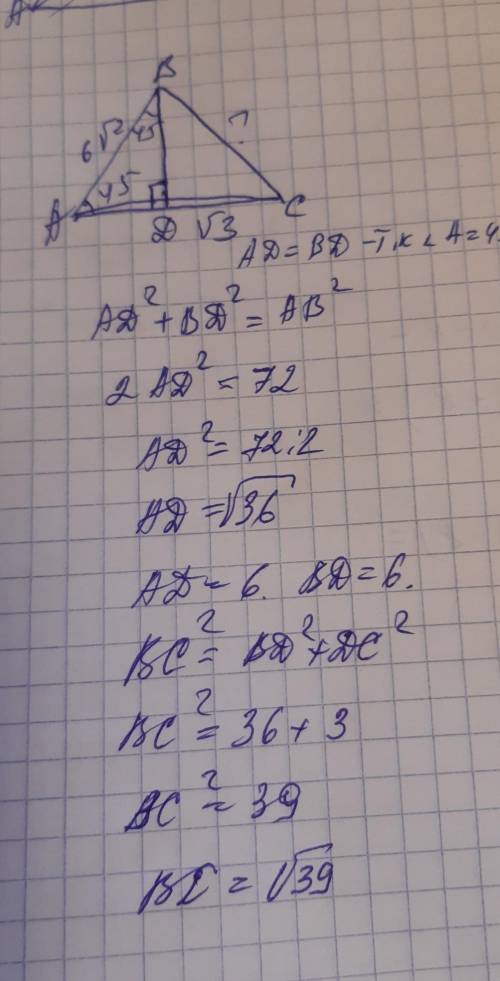 A
B
6√2 45 ?
45
A D √3 C
AD = BD - т.к < A = 4
AD² + BD² = AB²
2 AD² = 72
AD² = 72:2
AD = √36
AD = 6. BD = 6.
BC² = BD² + DC²
BC² = 36 + 3
BC² = 39
BC = √39